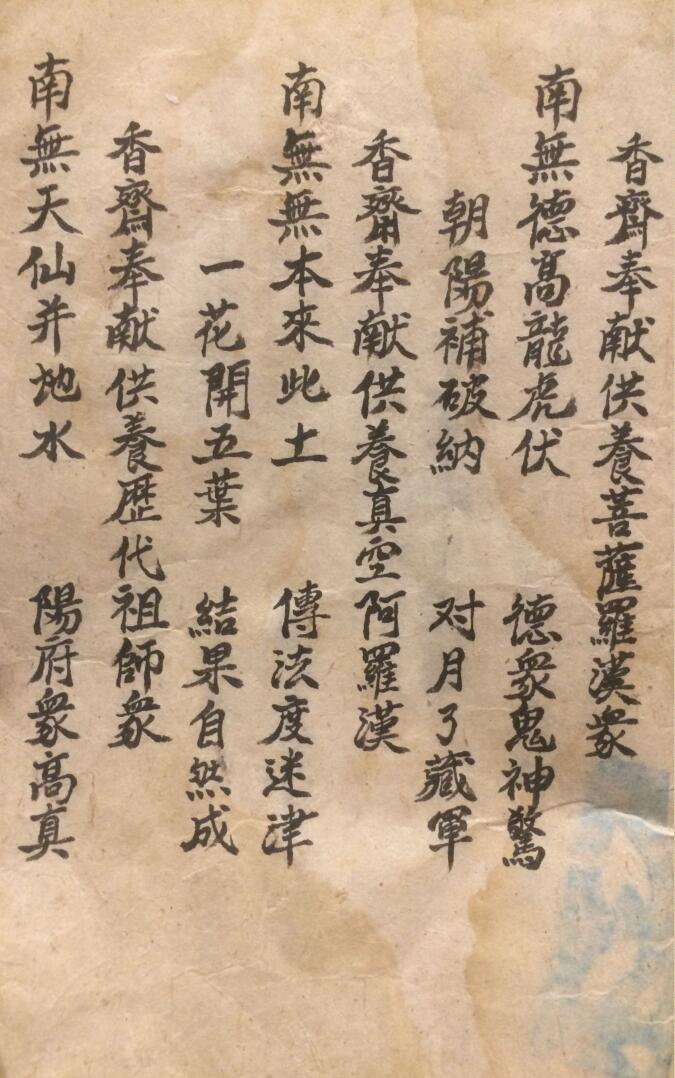 香齋奉献供養菩薩羅漢衆
南無德高龍虎伏　德衆鬼神驚
朝陽補破納　对月了藏軍
香齋奉献供養真空阿羅漢
南無無本來此土　傳法度迷津
一花開五葉　結果自然成
香齋奉献供養歷代祖師衆
南無天仙并地水　陽府衆高真